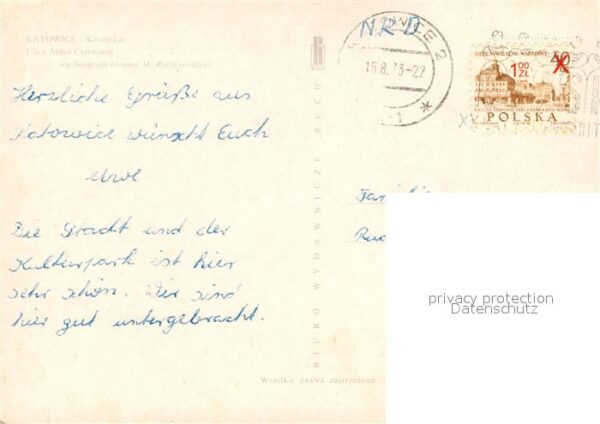 KATOWICE – Koszutka
Ulica Armii Czerwonej
wg fotografii barwnej M. Raczkowskiego
Herzliche Grüße aus
Katowice wünscht Euch
Uwe
Die Stadt und der
Kulturpark ist hier
sehr schön. Wir sind
hier gut untergebracht.
BIURO WYDAWNICZE RUCH
Wszelkie prawa zastrzeżone
NRD
KATOWICE 2
15.8.73-22
1,00 ZŁ
40
POLSKA
XX
Familie
privacy protection
Datenschutz